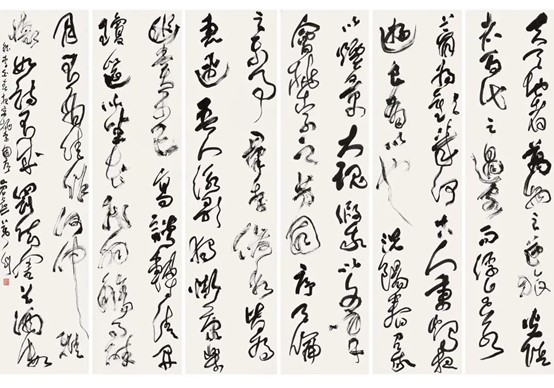 夫天地者萬物之逆旅光陰
者百代之過客而浮生若
夢為歡幾何古人秉燭夜
遊良有以也況陽春召我
以煙景大塊假我以文章
會桃李之芳園序天倫
之樂事群季俊秀皆為
惠連吾人詠歌獨慚康樂
幽賞未已高談轉清開
瓊筵以坐花飛羽觴而醉
月不有佳詠何伸雅
懷如詩不成罰依金谷酒數